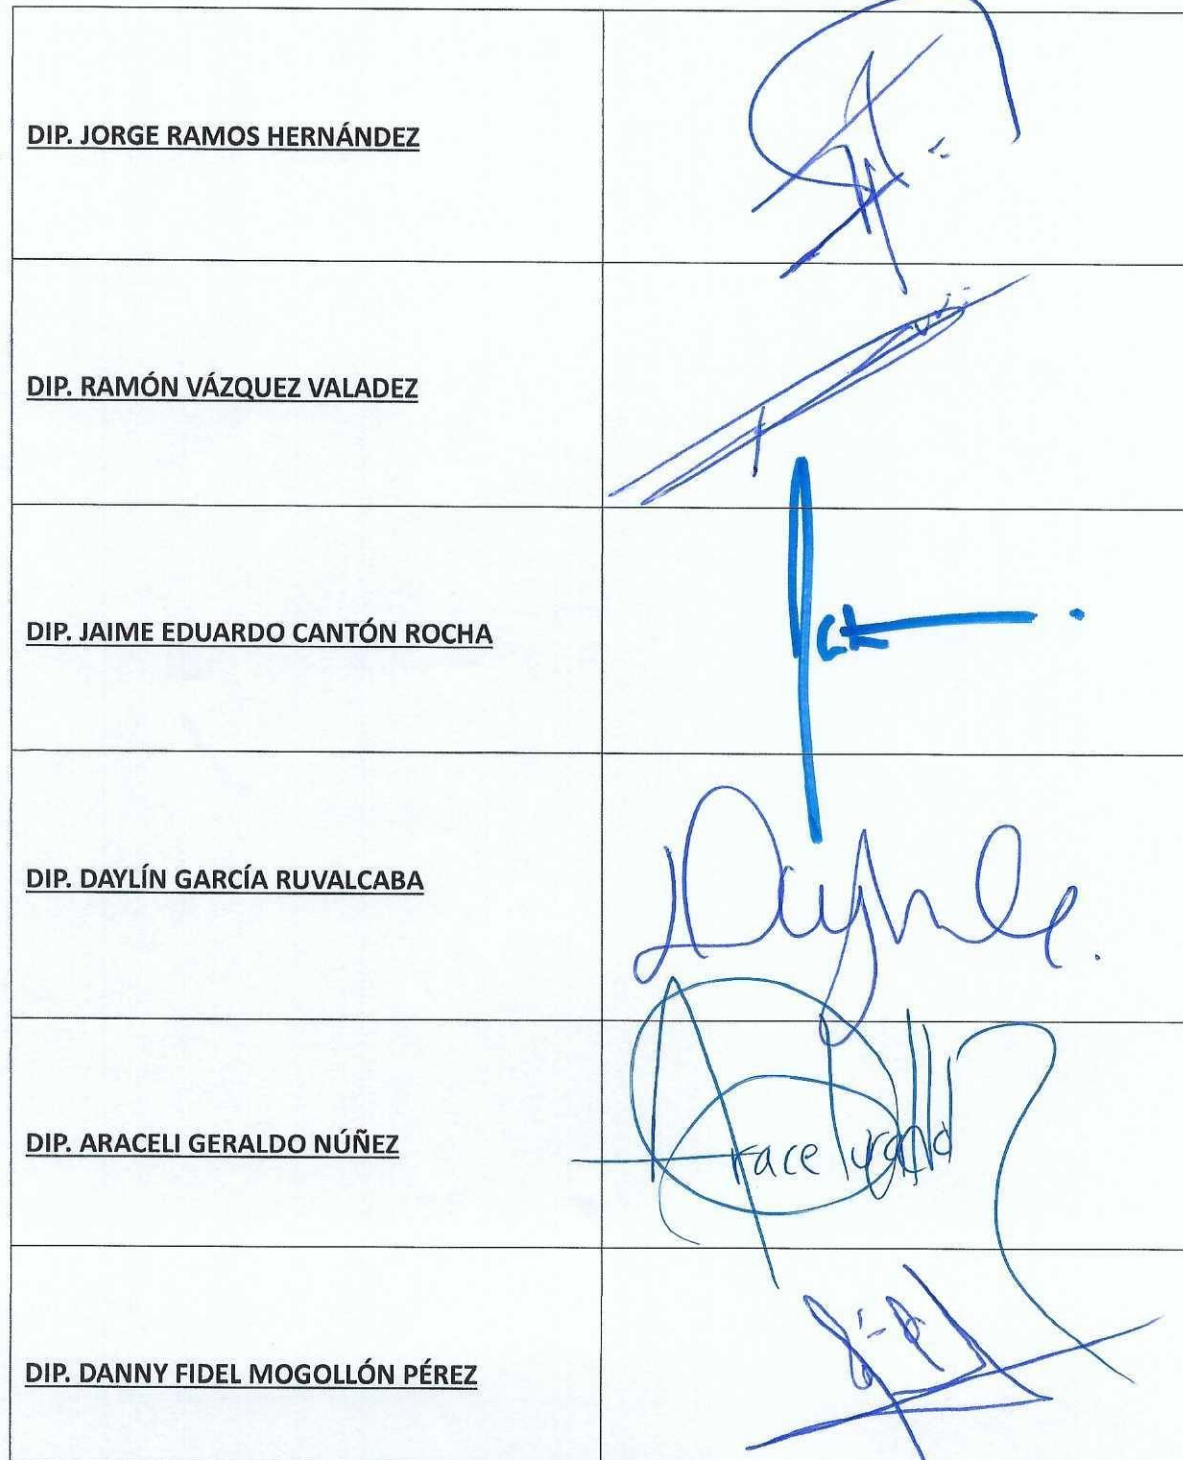 DIP. JORGE RAMOS HERNÁNDEZ
DIP. RAMÓN VÁZQUEZ VALADEZ
DIP. JAIME EDUARDO CANTÓN ROCHA
DIP. DAYLÍN GARCÍA RUVALCABA
DIP. ARACELI GERALDO NÚÑEZ
DIP. DANNY FIDEL MOGOLLÓN PÉREZ